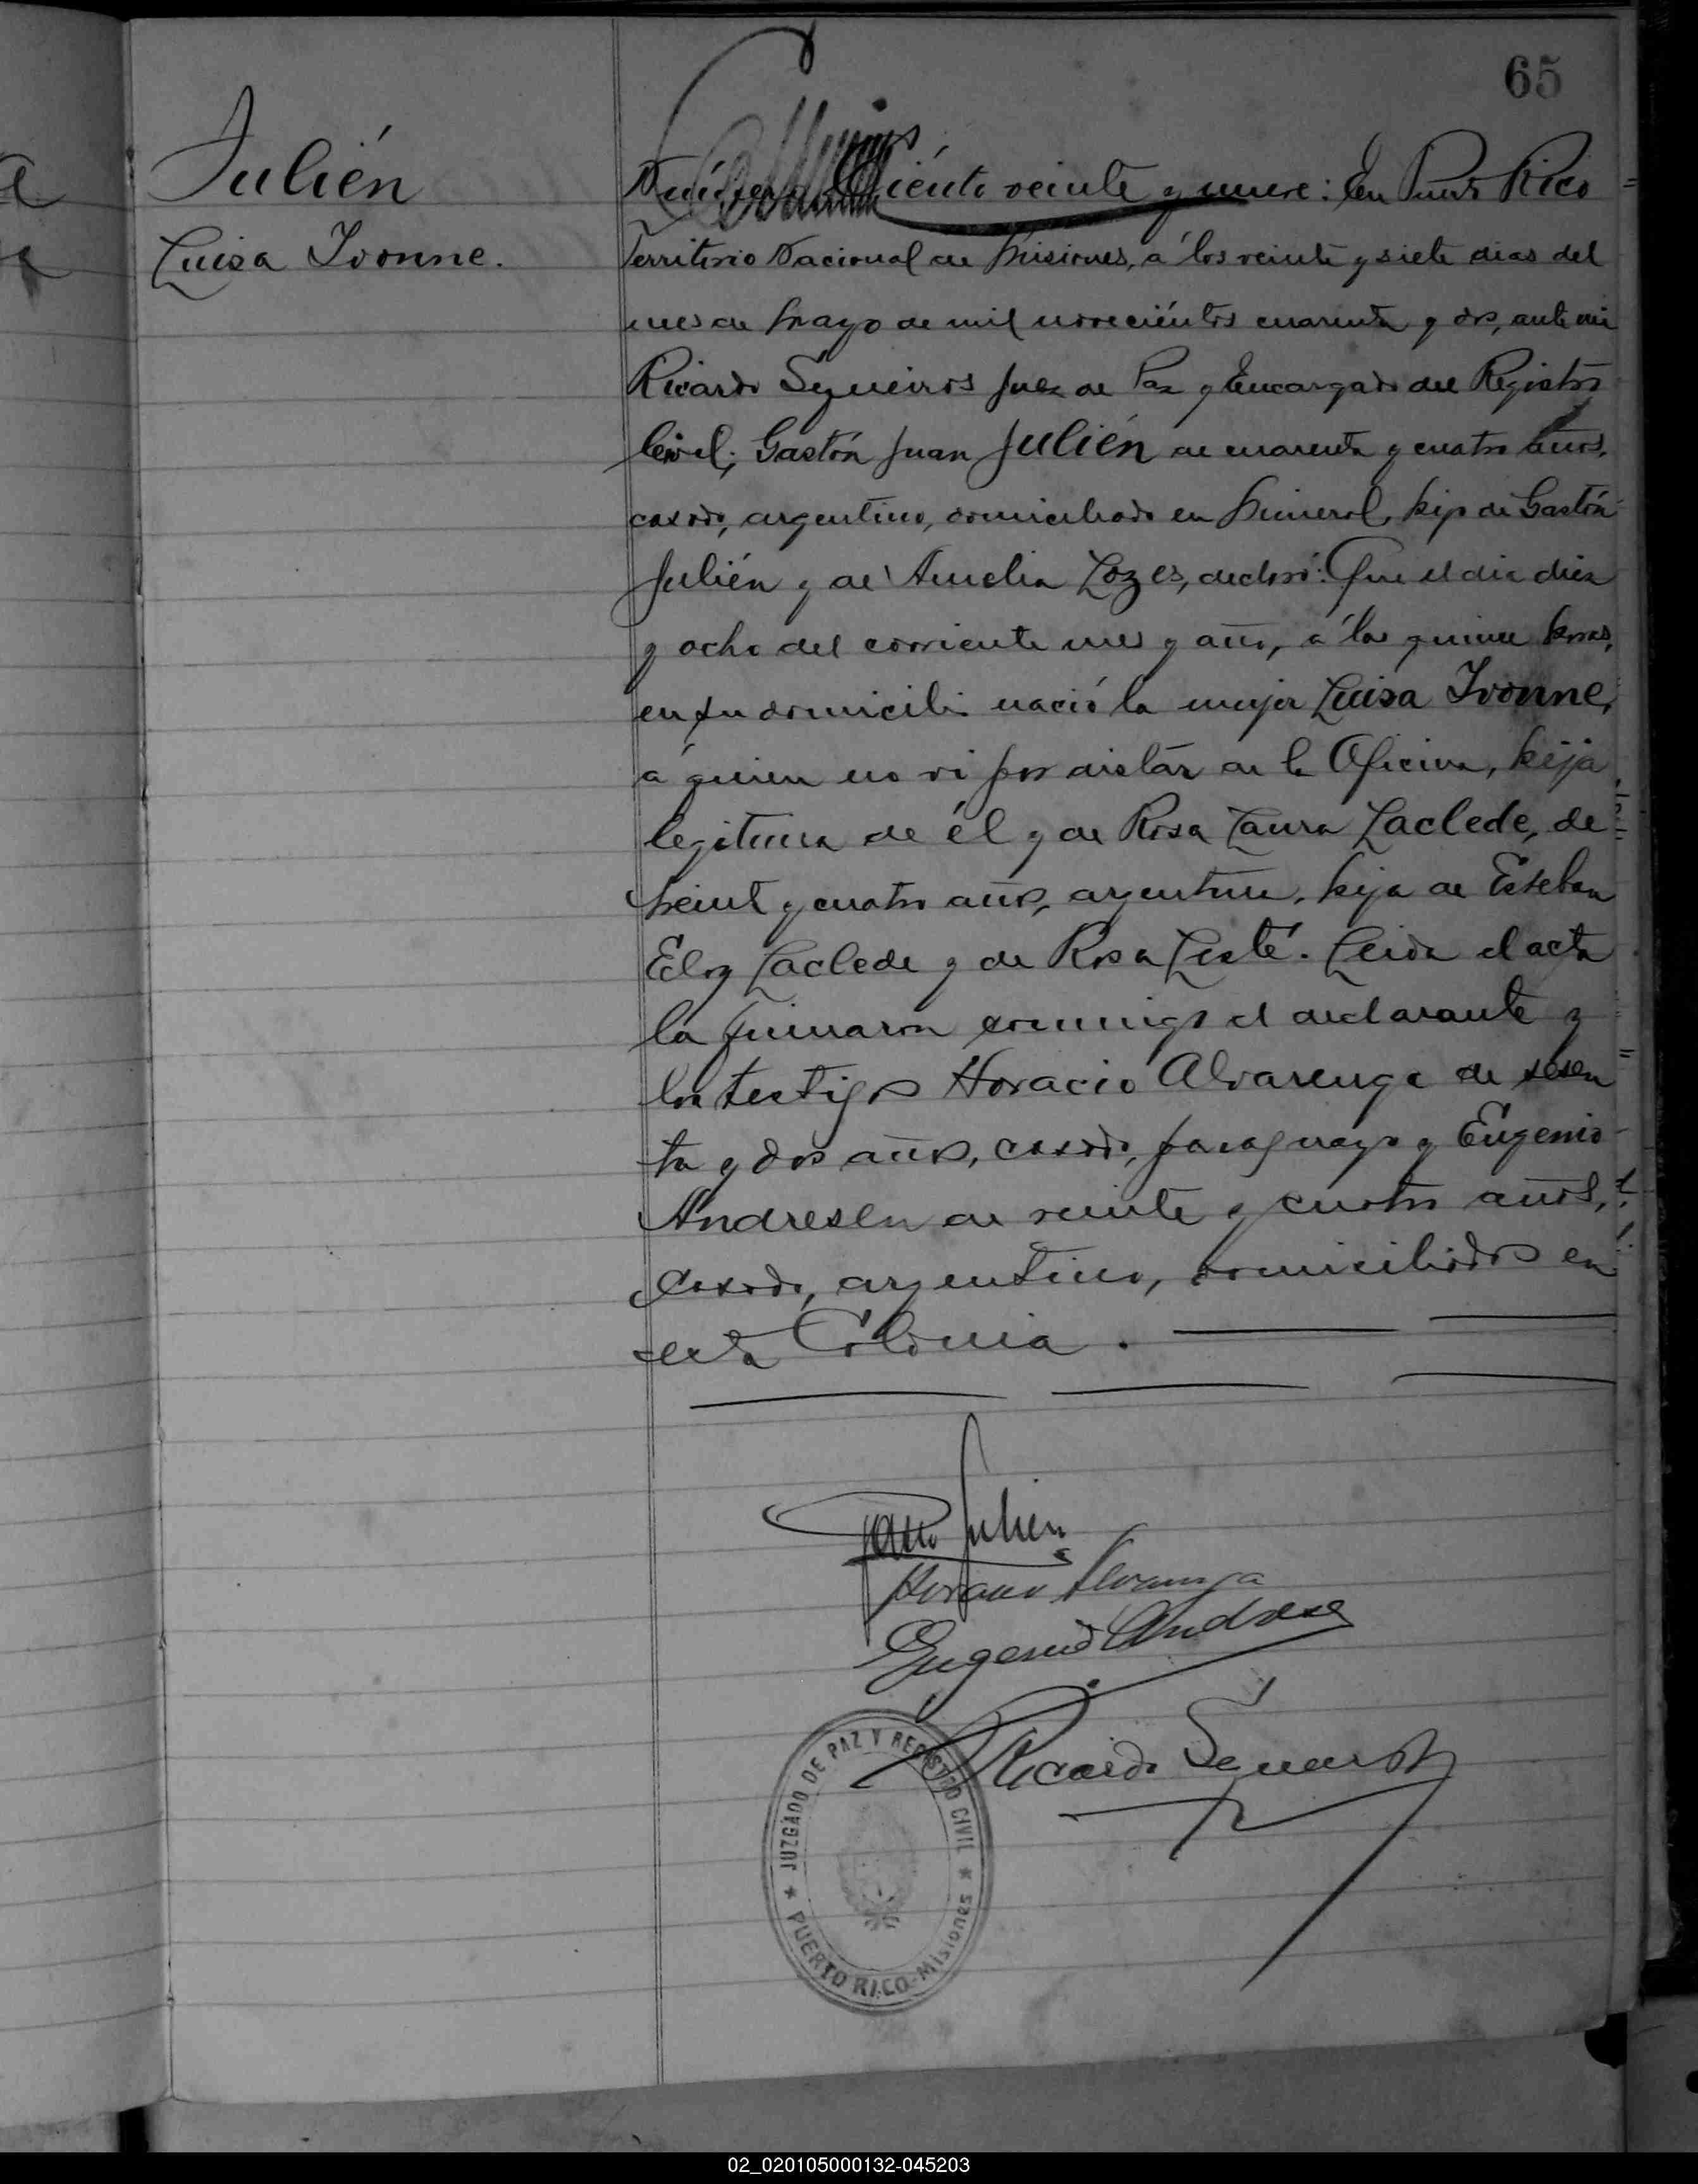 65
Julién
Luisa Ivonne.
Número Ciénto veinte y nueve: En Puerto Rico
Territorio Nacional de Misiones, á los veinte y siete dias del
mes de Mayo de mil noveciéntos cuarenta y dos, ante mi
Ricardo Sequeiros Juez de Paz y Encargado del Registro
Civil; Gastón Juan Julién de cuarenta y cuatro años,
casado, argentino, domiciliado en Mineral, hijo de Gastón
Julién y de Amelia Lozes, declaró: Que el dia diez
y ocho del corriente mes y año, á las quince horas,
en su domicilio nació la mujer Luisa Ivonne,
á quien no vi por distár de la Oficina, hija
legitima de él y de Rosa Laura Laclede, de
treinta y cuatro años, argentina, hija de Esteban
Eloy Laclede y de Rosa Lesté. Leida el acta
la firmaron conmigo el declarante y
los testigos Horacio Alvarenga de sesen
ta y dos años, casado, paraguayo y Eugenio
Andresen de veinte y cuatro años,
casado, argentino, domiciliados en
esta Colonia.
Julien
Horacio Alvarenga
Eugenio Andresen
Ricardo Sequeiros
JUZGADO DE PAZ Y REGISTRO CIVIL
PUERTO RICO-Misiones
02_020105000132-045203